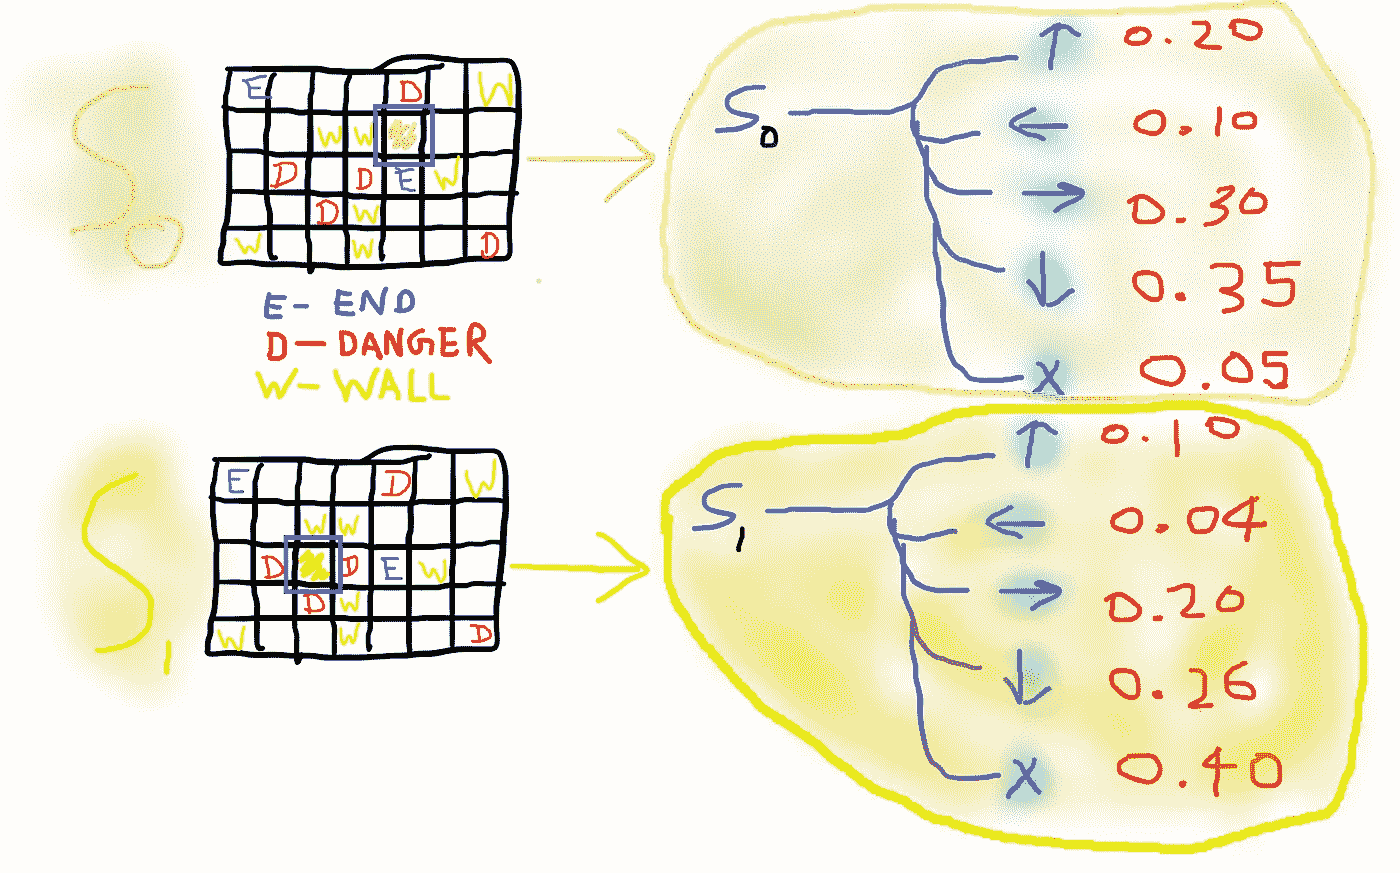 S0
E D W
W W
D D E W
D W
W W D
E- END
D-DANGER
W-WALL
S0
↑ 0.20
← 0.10
→ 0.30
↓ 0.35
X 0.05
S1
E D W
W W
D D E W
D W
W W D
S1
↑ 0.10
← 0.04
→ 0.20
↓ 0.26
X 0.40